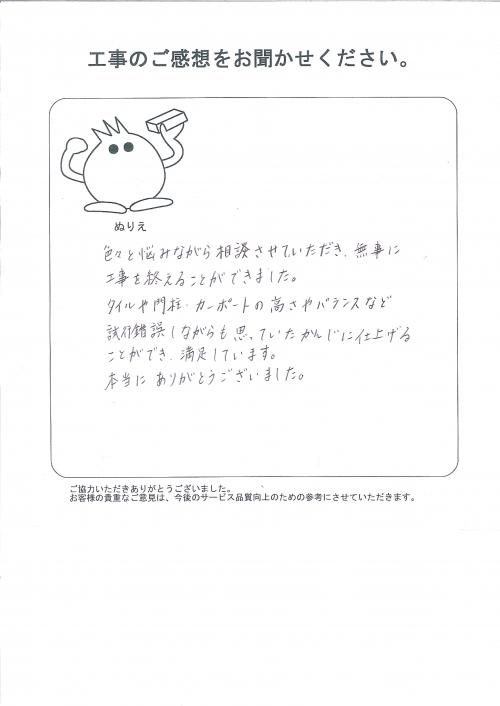 工事のご感想をお聞かせください。
ぬりえ
色々と悩みながら相談させていただき、無事に
工事を終えることができました。
タイルや門柱・カーポートの高さやバランスなど
試行錯誤しながらも思っていたかんじに仕上げる
ことができ、満足しています。
本当にありがとうございました。
ご協力いただきありがとうございました。
お客様の貴重なご意見は、今後のサービス品質向上のための参考にさせていただきます。